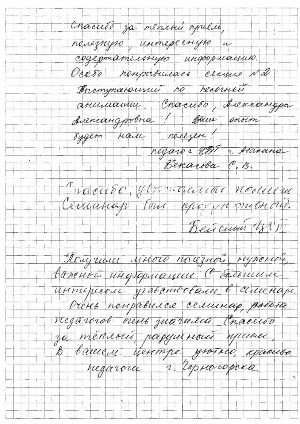 Спасибо за тёплый приём,
полезную, интересную и
содержательную информацию.
Особо понравилась секция №2
Выступающий по песочной
анимации. Спасибо, Александра
Александровна! Ваш опыт
будет нам полезен!
педагог г. Абакана
С. В.
Спасибо, уважаемые коллеги
Семинар был продуктивный.
Получили много полезной, нужной,
важной информации. С большим
интересом участвовали в семинаре
Очень понравился семинар, работа
педагогов очень значима. Спасибо
за тёплый радушный приём.
В вашем центре уютно, красиво
педагоги г. Черногорска